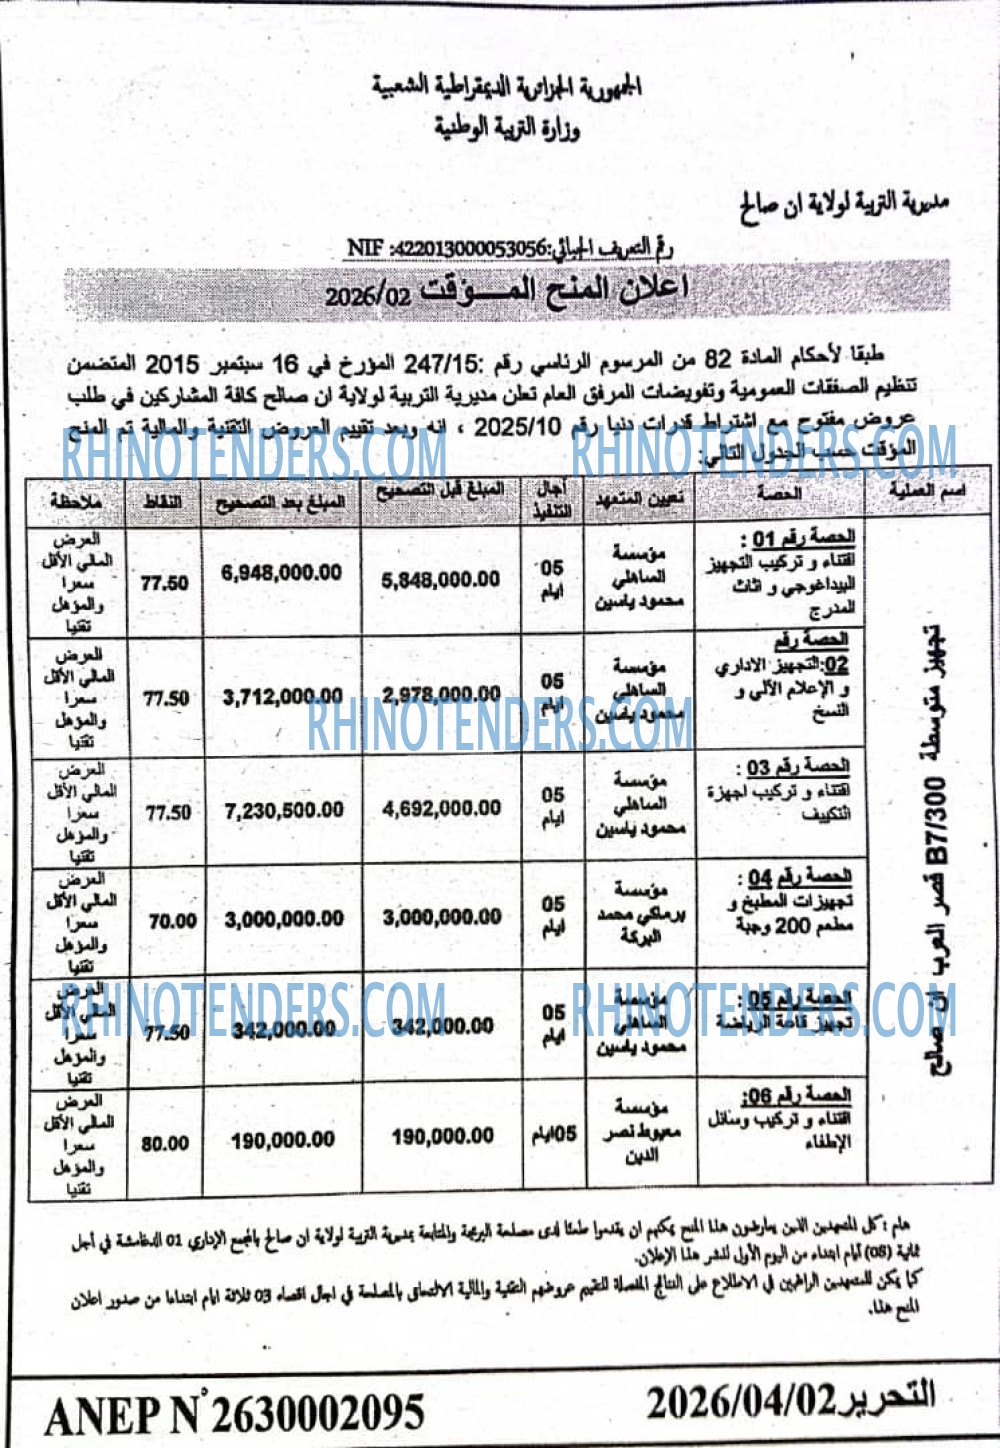 الجمهورية الجزائرية الديمقراطية الشعبية
وزارة التربية الوطنية
مديرية التربية لولاية ان صالح
رقم التعريف الجبائي:NIF :422013000053056
اعلان المنح المـــــؤقت 2026/02
طبقا لأحكام المادة 82 من المرسوم الرئاسي رقم :247/15 المؤرخ في 16 سبتمبر 2015 المتضمن
تنظيم الصفقات العمومية وتفويضات المرفق العام تعلن مديرية التربية لولاية ان صالح كافة المشاركين في طلب
عروض مفتوح مع اشتراط قدرات دنيا رقم 2025/10 ، انه وبعد تقييم العروض التقنية والمالية تم المنح
المؤقت حسب الجدول التالي:
اسم العملية | الحصة | تعيين المتعهد | أجال التنفيذ | المبلغ قبل التصحيح | المبلغ بعد التصحيح | النقاط | ملاحظة
تجهيز متوسطة B7/300 قصر العرب ان صالح
الحصة رقم 01 : اقتناء و تركيب التجهيز البيداغوجي و اثاث المدرج | مؤسسة الساهلي محمود ياسين | 05 ايام | 5,848,000.00 | 6,948,000.00 | 77.50 | العرض المالي الأقل سعرا والمؤهل تقنيا
الحصة رقم 02:التجهيز الاداري و الإعلام الآلي و النسخ | مؤسسة الساهلي محمود ياسين | 05 ايام | 2,978,000.00 | 3,712,000.00 | 77.50 | العرض المالي الأقل سعرا والمؤهل تقنيا
الحصة رقم 03 : اقتناء و تركيب اجهزة التكييف | مؤسسة الساهلي محمود ياسين | 05 ايام | 4,692,000.00 | 7,230,500.00 | 77.50 | العرض المالي الأقل سعرا والمؤهل تقنيا
الحصة رقم 04 : تجهيزات المطبخ و مطعم 200 وجبة | مؤسسة برماكي محمد البركة | 05 ايام | 3,000,000.00 | 3,000,000.00 | 70.00 | العرض المالي الأقل سعرا والمؤهل تقنيا
الحصة رقم 05 : تجهيز قاعة الرياضة | مؤسسة الساهلي محمود ياسين | 05 ايام | 342,000.00 | 342,000.00 | 77.50 | العرض المالي الأقل سعرا والمؤهل تقنيا
الحصة رقم 06: اقتناء و تركيب وسائل الإطفاء | مؤسسة معيوط نصر الدين | 05ايام | 190,000.00 | 190,000.00 | 80.00 | العرض المالي الأقل سعرا والمؤهل تقنيا
هام : كل المتعهدين الذين يعارضون هذا المنح يمكنهم ان يقدموا طعنا لدى مصلحة البرمجة والمتابعة بمديرية التربية لولاية ان صالح بالمجمع الإداري 01 الدغامشة في أجل
ثمانية (08) أيام ابتداء من اليوم الأول لنشر هذا الإعلان.
كما يمكن للمتعهدين الراغبين في الاطلاع على النتائج المفصلة لتقييم عروضهم التقنية والمالية الاتصال بالمصلحة في اجال اقصاه 03 ثلاثة ايام ابتداءا من صدور اعلان
المنح هذا.
ANEP N° 2630002095
التحرير 2026/04/02
RHINOTENDERS.COM
RHINOTENDERS.COM
RHINOTENDERS.COM
RHINOTENDERS.COM
RHINOTENDERS.COM